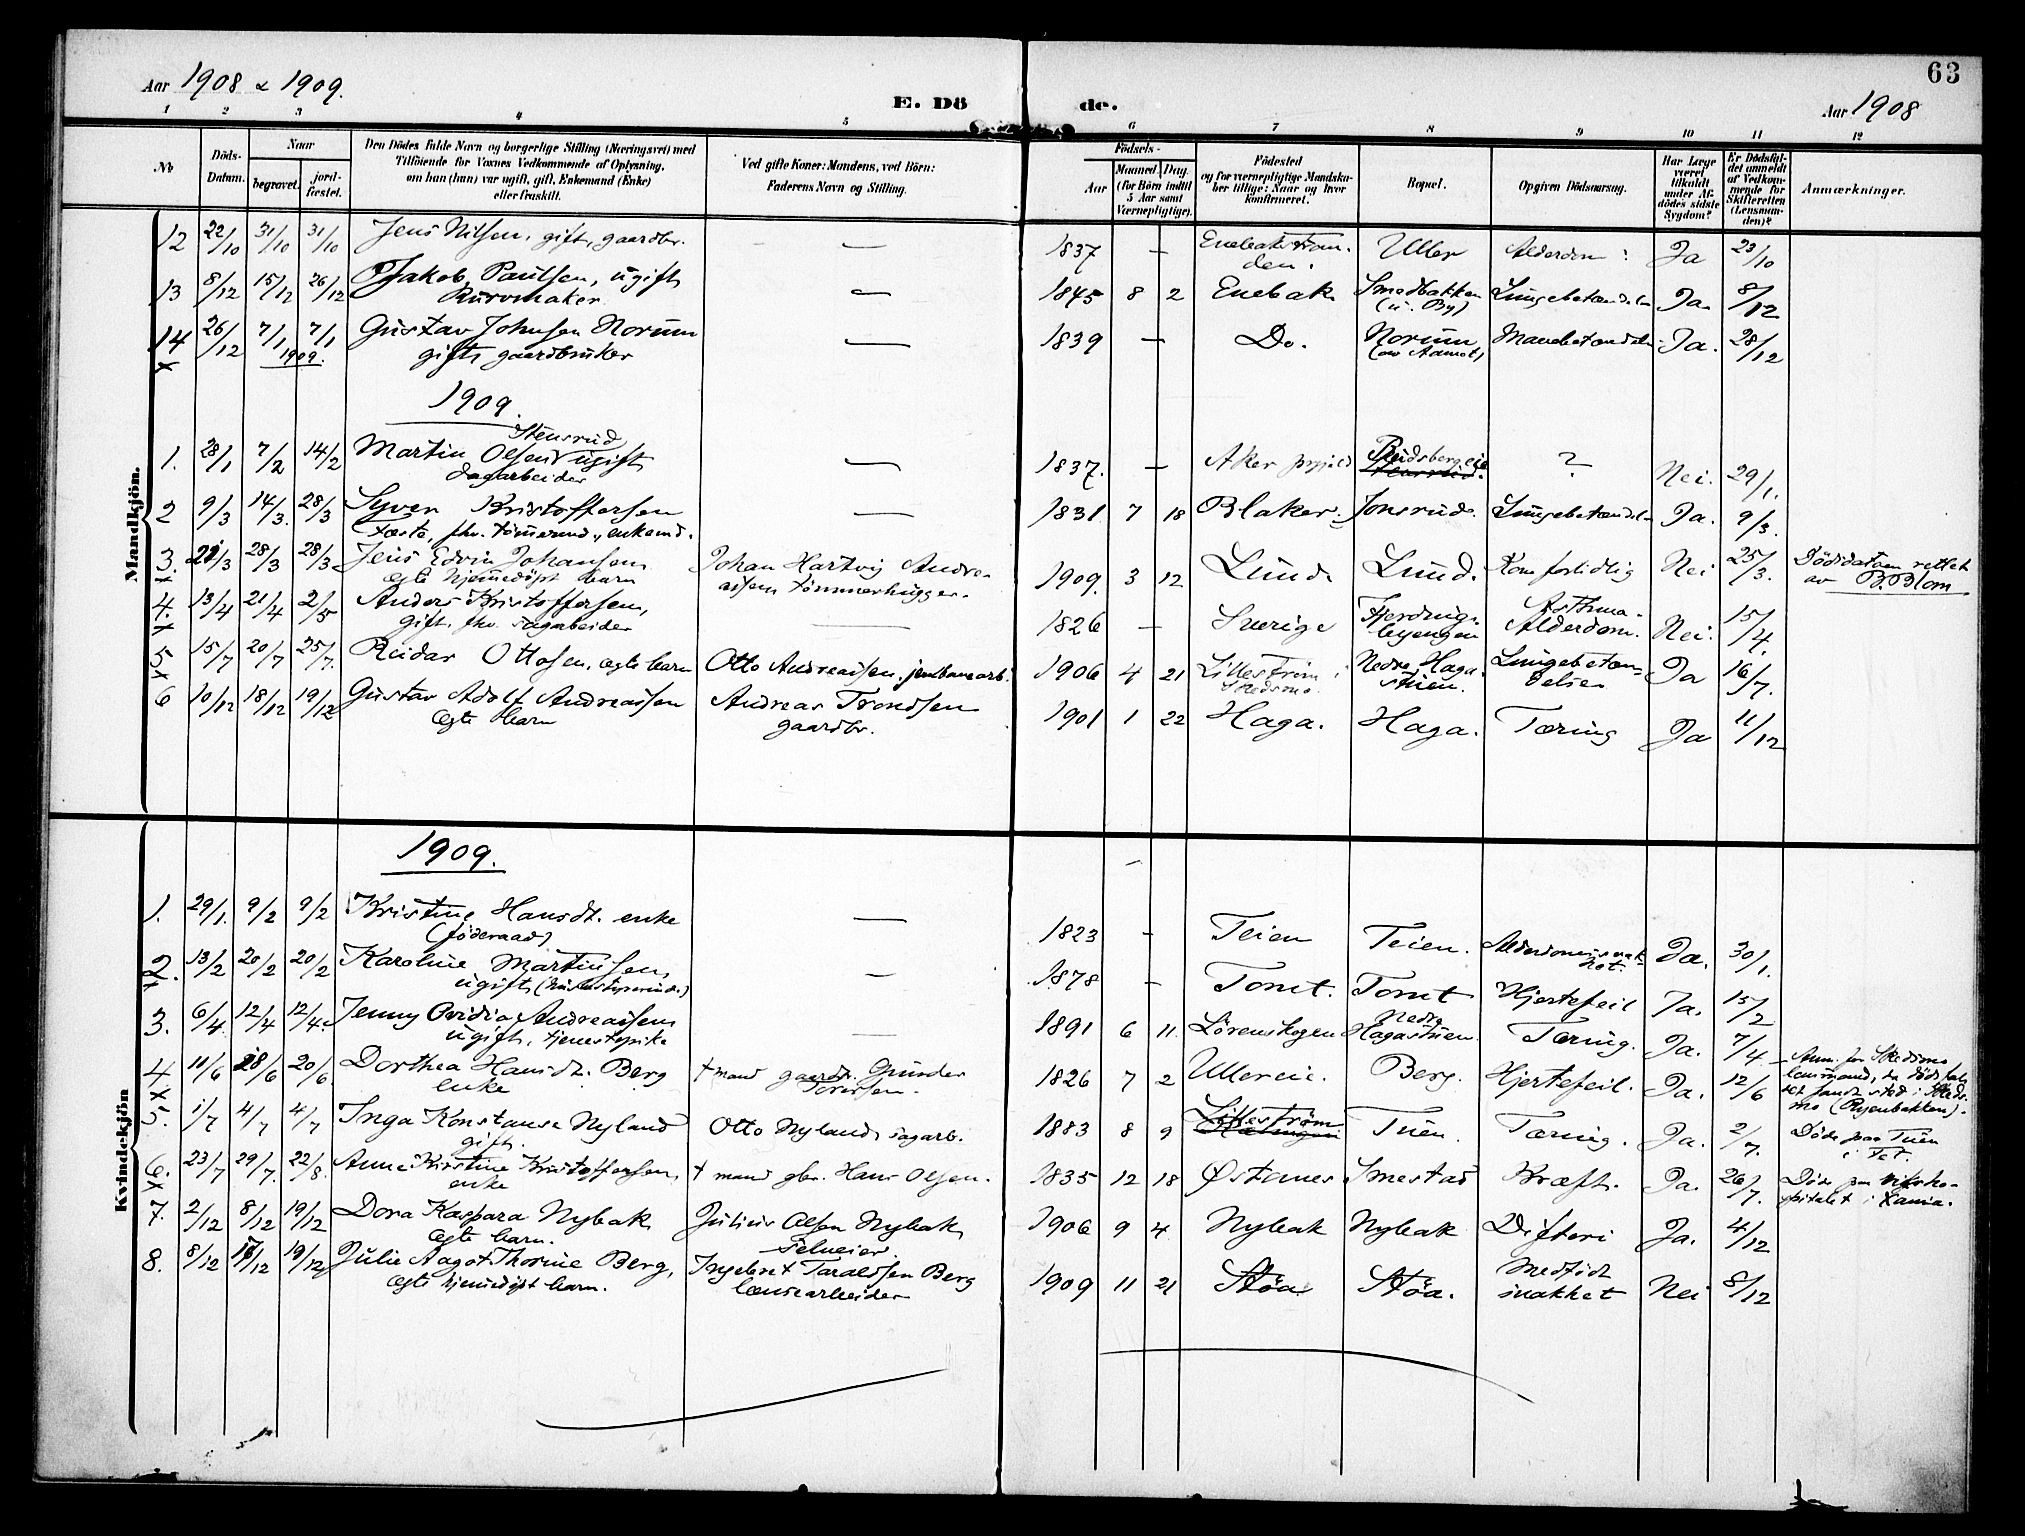 63
Aar 1908 & 1909.
E. Dö de.
Aar 1908
1 2 3 4 5 6 7 8 9 10 11 12
No
Döds-Datum.
Naar
begravet.
jordfæstet.
Den Dödes fulde Navn og borgerlige Stilling (Næringsvei) med
Tilföiende for Voxnes Vedkommende af Oplysning,
om han (hun) var ugift, gift, Enkemand (Enke)
eller fraskilt.
Ved gifte Koner: Mandens, ved Börn:
Faderens Navn og Stilling.
Födsels-
Aar
Maaned. Dag
(for Börn indtil
5 Aar samt
Værnepligtige).
Födested
og for værnepligtige Mandskaber tillige: Naar og hvor
konfirmeret.
Bopæl.
Opgiven Dödsaarsag.
Har Læge
været
tilkaldt
under Afdödes sidste
Sygdom?
Er Dödsfaldet anmeldt
af Vedkommende for
Skifteretten
(Lensmanden)?
Anmærkninger.
Mandkjön.
12 22/10 31/10 31/10 Jens Nilsen, gift, gaardbr. — 1837 — Enebakstranden. Uller Alderdom Ja 23/10
13 8/12 15/12 26/12 Jakob Paulsen, ugift — 1845 8 2 Enebak Smedbakken Lungebetændelse Ja 8/12
Kurvmaker (u. By)
14 26/12 7/1 7/1 Gustav Johnsen Norum — 1839 — Do. Norum Mavebetændelse Ja. 28/12
x 1909. gift, gaardbruker
1909.
Stensrud
1. 28/1 7/2 14/2 Martin Olsen ugift — 1837. — Aker Reidsbergeie ? Nei. 29/1.
dagarbeider
2 9/3 14/3. 28/3 Syver Kristoffersen — 1831 7 18 Blaker. Jonsrud. Lungebetændelse Ja. 9/3.
enkemd.
3. 21/3 28/3 28/3 Jens Edvin Johansen Johan Hartvig Andreassen tømmerhugger. 1909. 3 12 Lund. Lund. Kom fortidlig Nei 25/3. Dödsdatoen rettet
x egte hjemmedöpt barn av B. Blom
4. 13/4 21/4 2/5 Anders Kristoffersen, — 1826 — Sverige Asthma. Alderdom. Nei. 15/4.
x gift, fhv. sagarbeider
5 15/7 20/7 25/7. Reidar Ottosen, egte barn Otto Andreassen, jernbanearb. 1906 4 21 Lilleström i Skedsmo. Nedre Hagastuen. Lungebetændelse Ja 16/7.
x
6 10/12 18/12 19/12 Gustav Adolf Andreassen Andreas Trondsen 1901 1 22 Haga. Haga. Tæring Ja 11/12
egte barn gaardbr.
Kvindekjön
1909.
1. 29/1. 9/2 9/2 Kristine Hansdt. enke — 1823 — Teien Teien. Ja. 30/1.
(föderaad)
2. 13/2 20/2 20/2 Karoline Martinsen, — 1878 — Tomt. Tomt Hjertefeil Ja. 15/2
x ugift
3. 6/4 12/4 12/4. Jenny Ovidia Andreassen — 1891 6 11. Lörenskogen Nedre Hagastuen. Tæring. Ja. 7/4
ugift, tjenestepike
4 11/6 18/6 20/6. Dorthea Hansdt. Berg † mand gaardbr. Gunder 1826 7 2 Ullereie. Berg. Hjertefeil. Ja. 12/6 Anm. for Skedsmo
x enke lensmand, da dödsfaldet fandt sted i Skedsmo (Ryenbakken).
5. 1/7 4/7 4/7 Inga Konstanse Nyland Otto Nyland, sagarb. 1883 8 9 Lilleström Tuen. Tæring. Ja. 2/7. Döde paa Tuen
gift. i Fet.
6. 23/7 29/7. 22/8. Anne Kirstine Kristoffersen, † mand gbr. Hans Olsen. 1835 12 18 Østanes Smestad Kræft. Ja. 26/7. Döde paa rikshospitalet i Kania.
x enke
7. 2/12 8/12 19/12 Dora Kaspara Nybak Julius Olsen Nybak 1906 9 4 Nybak Nybak Difteri Ja. 4/12
egte barn. selveier.
8. 8/12 18/12 19/12 Julie Aagot Thorine Berg, Ingebret Taraldsen Berg 1909 11 21 Støa Støa. Medfødt svakhet Nei 8/12
egte hjemmedöpt barn. lensearbeider